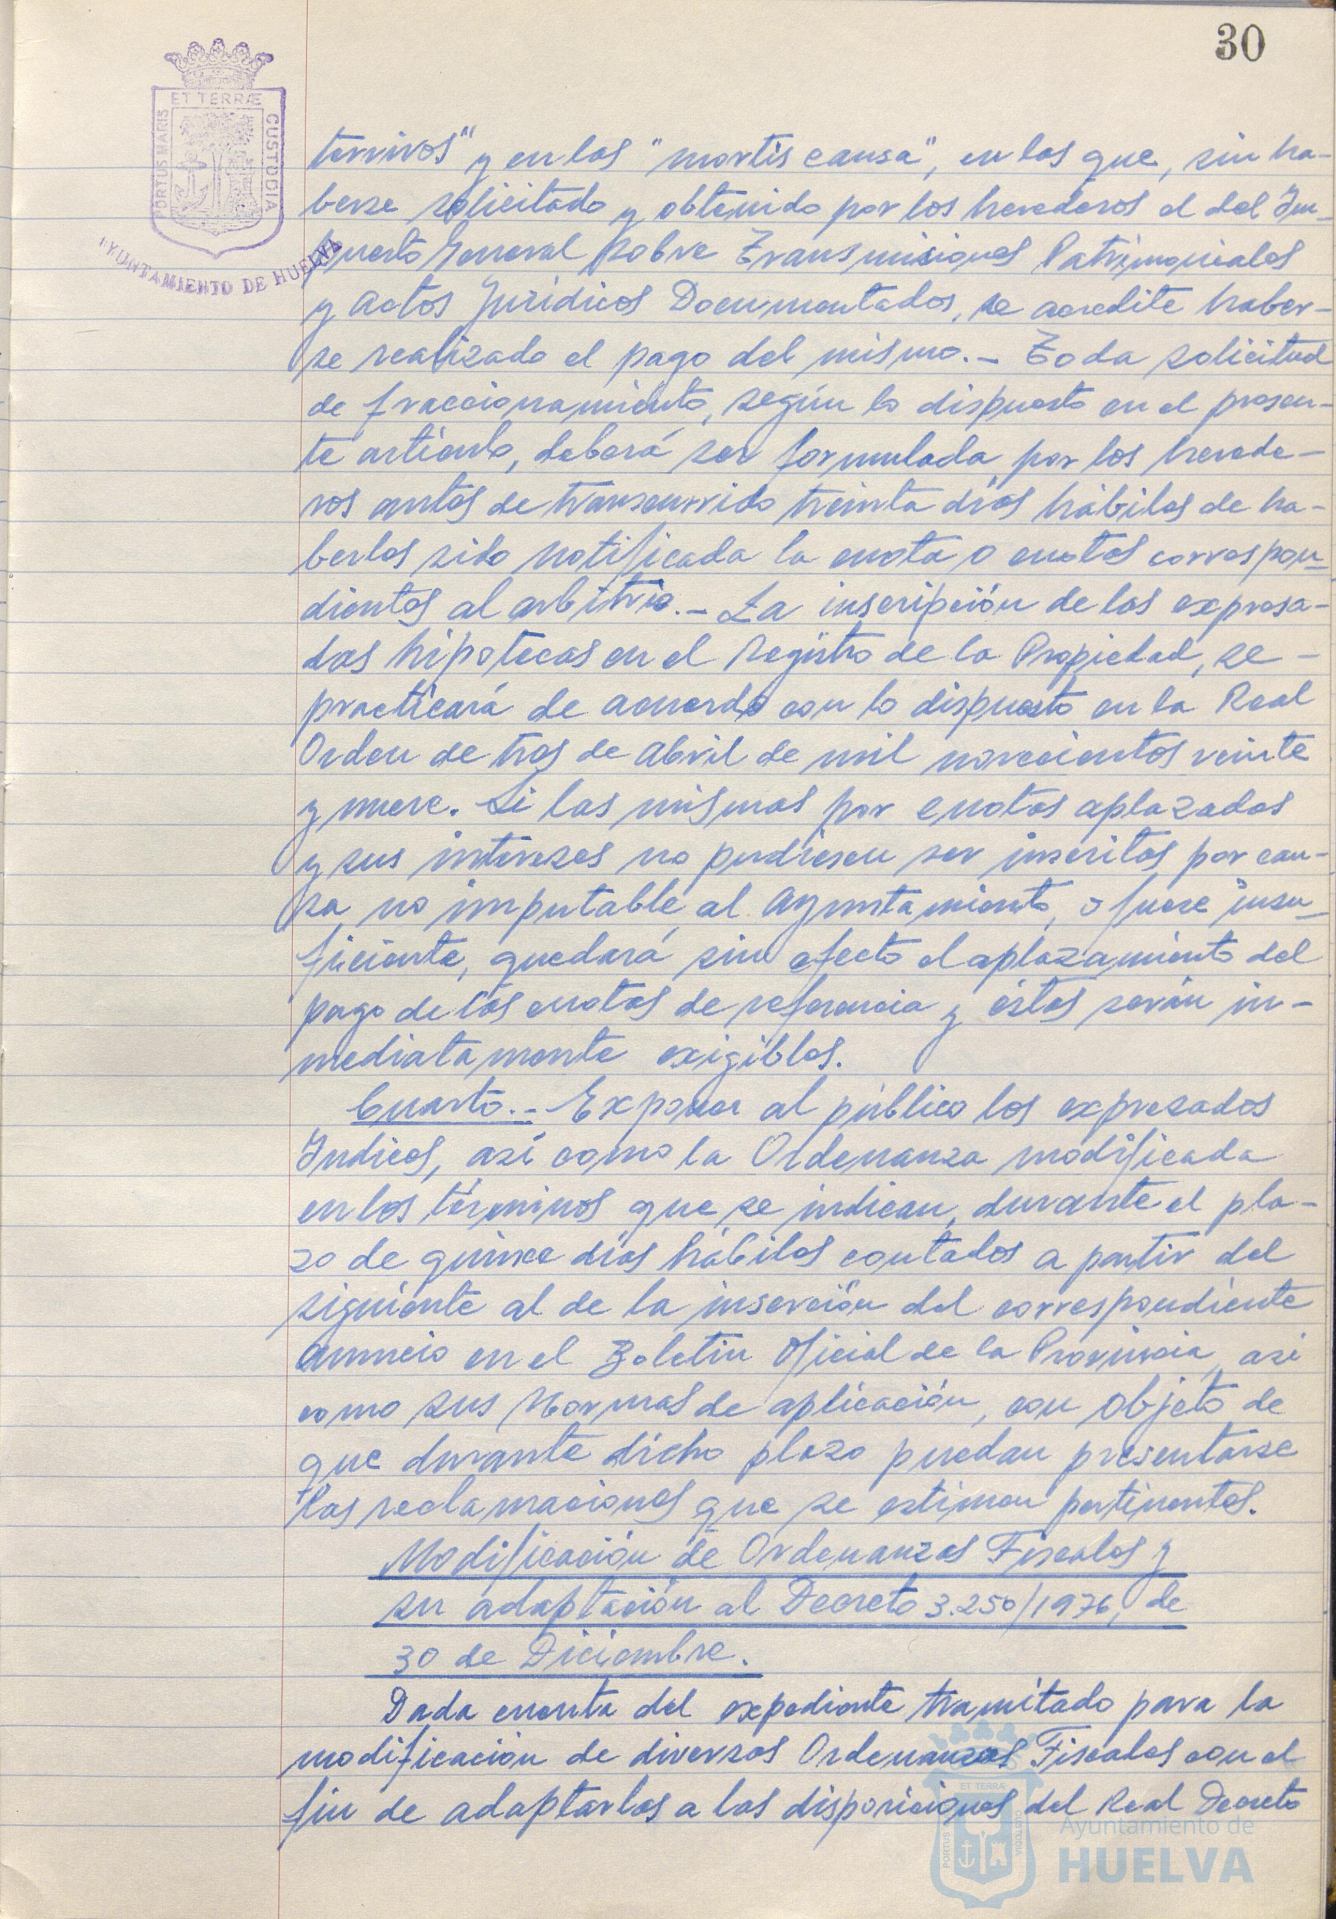 30
ET TERRÆ
PORTUS MARIS
CUSTODIA
AYUNTAMIENTO DE HUELVA
tervivos" y en las "mortis causa", en las que, sin ha-
berse solicitado y obtenido por los herederos el del Im-
puesto General sobre Transmisiones Patrimoniales
y Actos Jurídicos Documentados, se acredite haber-
se realizado el pago del mismo.- Toda solicitud
de fraccionamiento, según lo dispuesto en el presen-
te artículo, deberá ser formulada por los herede-
ros antes de transcurrido treinta días hábiles de ha-
berles sido notificada la cuota o cuotas correspon-
dientes al arbitrio.- La inscripción de las expresa-
das hipotecas en el Registro de la Propiedad, se-
practicará de acuerdo con lo dispuesto en la Real
Orden de tres de Abril de mil novecientos veinte
y nueve. Si las mismas por cuotas aplazadas
y sus intereses no pudiesen ser inscritas por cau-
sa no imputable al Ayuntamiento, o fuese insu-
ficiente, quedará sin efecto el aplazamiento del
pago de las cuotas de referencia y éstas serán in-
mediatamente exigibles.
Cuarto.- Exponer al público los expresados
Indices, así como la Ordenanza modificada
en los términos que se indican, durante el pla-
zo de quince días hábiles contados a partir del
siguiente al de la inserción del correspondiente
anuncio en el Boletín Oficial de la Provincia, así
como sus Normas de aplicación, con objeto de
que durante dicho plazo puedan presentarse
las reclamaciones que se estimen pertinentes.
Modificación de Ordenanzas Fiscales y
su adaptación al Decreto 3.250/1976, de
30 de Diciembre.
Dada cuenta del expediente tramitado para la
modificación de diversas Ordenanzas Fiscales con el
fin de adaptarlas a las disposiciones del Real Decreto
ET TERRA
PORTUS
CUSTODIA
Ayuntamiento de
HUELVA